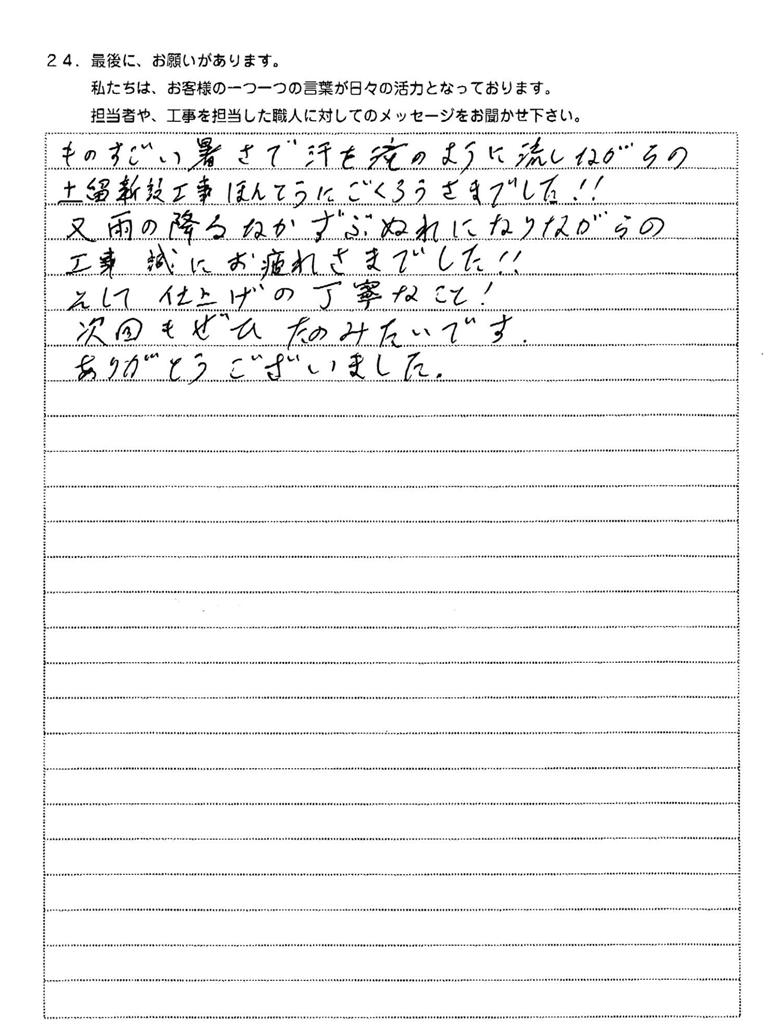 24. 最後に、お願いがあります。
私たちは、お客様の一つ一つの言葉が日々の活力となっております。
担当者や、工事を担当した職人に対してのメッセージをお聞かせ下さい。
ものすごい暑さで汗を滝のように流しながらの
土留新設工事ほんとうにごくろうさまでした!!
又雨の降るなかずぶぬれになりながらの
工事 誠にお疲れさまでした!!
そして 仕上げの丁寧なこと!
次回もぜひ たのみたいです.
ありがとうございました.